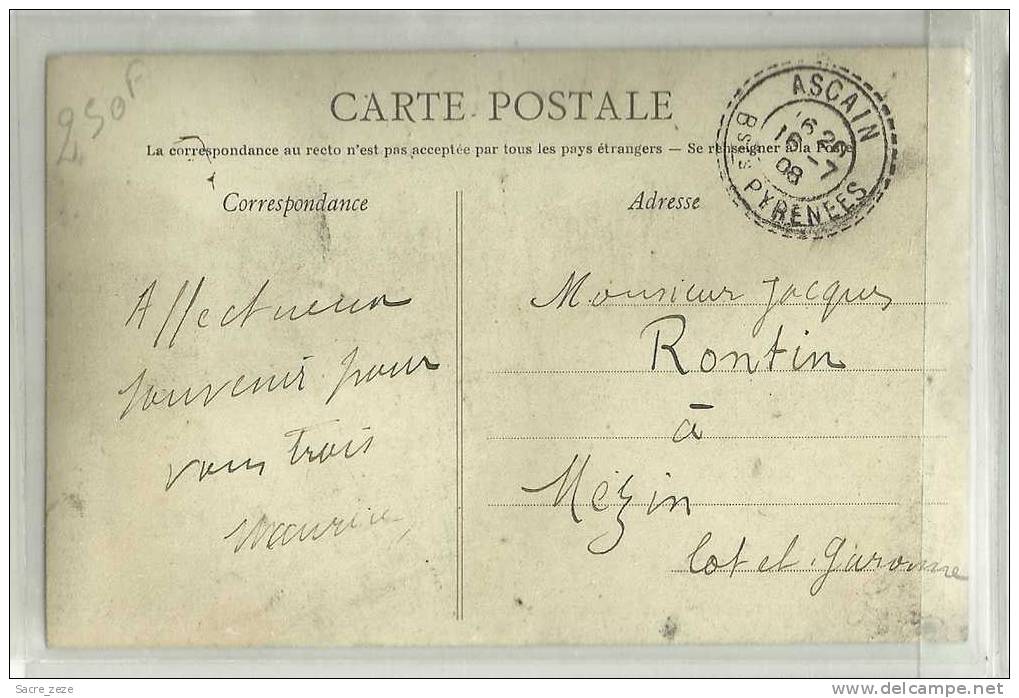 250F
CARTE POSTALE
La correspondance au recto n'est pas acceptée par tous les pays étrangers — Se renseigner à la Poste
ASCAIN
26
-7
08
Bses PYRENEES
Correspondance
Adresse
Affectueux
souvenir pour
vous trois
Maurice
Monsieur Jacques
Rontin
à
Mézin
Lot et Garonne
Sacre_zeze
www.delcampe.net